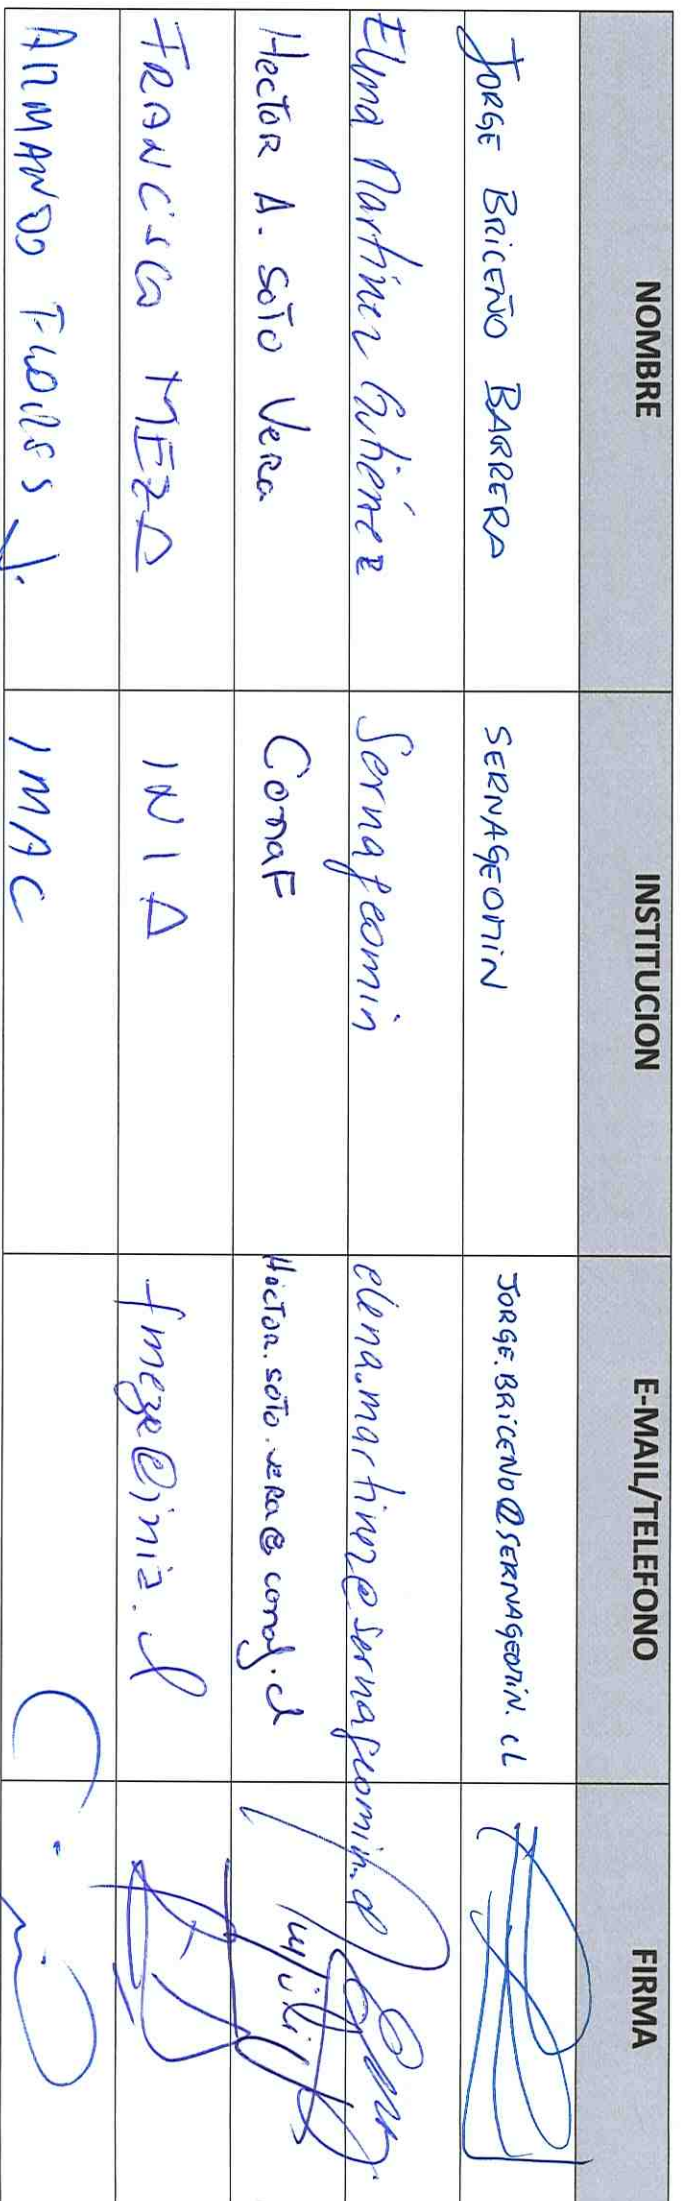 NOMBRE INSTITUCION E-MAIL/TELEFONO FIRMA
JORGE BRICEÑO BARRERA SERNAGEOMIN JORGE.BRICENO@SERNAGEOMIN.CL
Elena Martínez Gutiérrez Sernageomin elena.martinez@sernageomin.cl
Hector A. Soto Vera Conaf Hector.soto.vera@conaf.cl
FRANCISCO MEZA INIA fmeza@inia.cl
ARMANDO FLORES J. IMAC